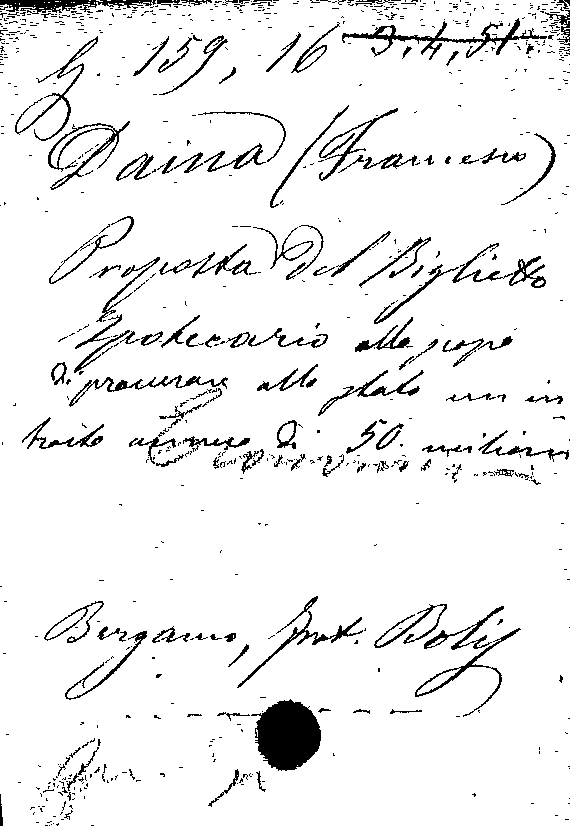 G. 159, 16 3.4,51.
Daina (Francesco)
Proposta del Biglietto
Ipotecario allo scopo
di procurare allo stato un in
troito annuo di 50. milioni
Economia
Bergamo, frat. Bolis